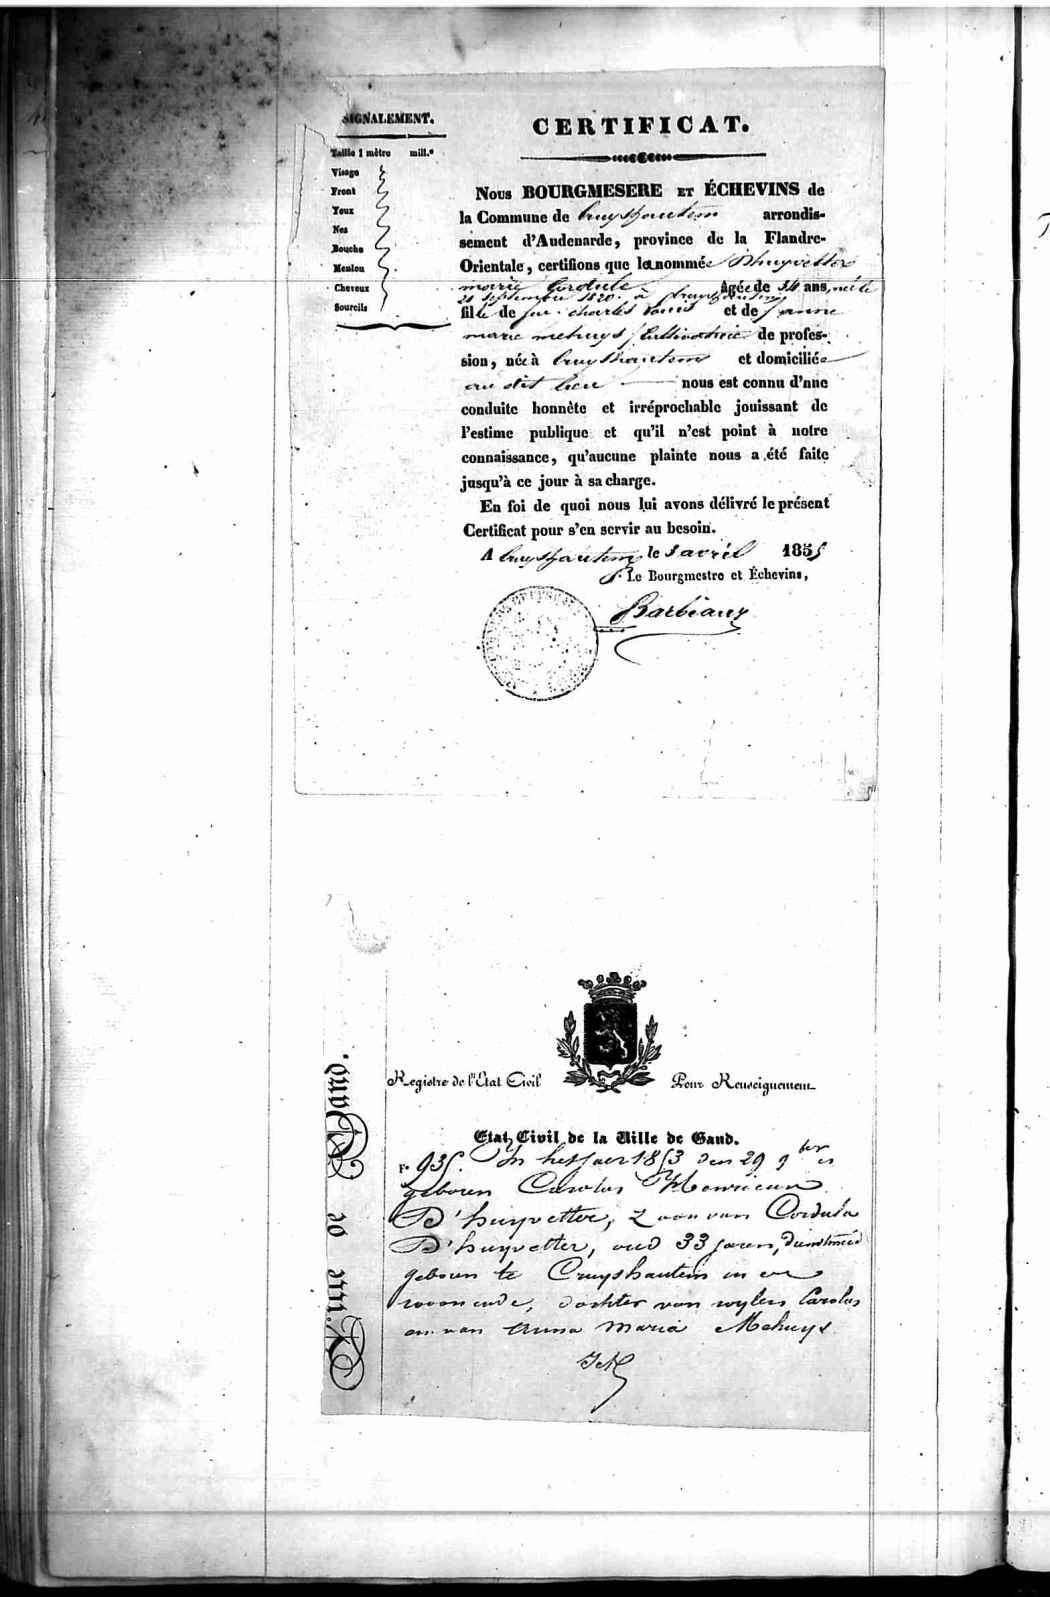 SIGNALEMENT.
Taille 1 mètre mill.e
Visage
Front
Yeux
Nes
Bouche
Menton
Cheveux
Sourcils
CERTIFICAT.
Nous BOURGMESERE ET ÉCHEVINS de
la Commune de Cruyshautem arrondis-
sement d'Audenarde, province de la Flandre-
Orientale, certifions que la nommée D'huyvetter
marie Cordule âgée de 34 ans, née le
21 Septembre 1820. à Cruyshautem
fille de feu charles Louis et de Jeanne
marie mehuys, Cultivatrice de profes-
sion, née à Cruyshautem et domiciliée
au dit lieu nous est connu d'une
conduite honnète et irréprochable jouissant de
l'estime publique et qu'il n'est point à notre
connaissance, qu'aucune plainte nous a été faite
jusqu'à ce jour à sa charge.
En foi de quoi nous lui avons délivré le présent
Certificat pour s'en servir au besoin.
A Cruyshautem le 5 avril 1855
P. Le Bourgmestre et Échevins,
Barbiaux
Registre de l'Etat Civil Pour Renseignement
Etat Civil de la Ville de Gand.
F° 935. In het Jaer 1853 den 29 9ber is
geboren Carolus Henricus
D'huyvetter, Zoon van Cordula
D'huyvetter, oud 33 jaren, dienstmeid
geboren te Cruyshautem en er
woonende, dochter van wylen Carolus
en van Anna Maria Mehuys